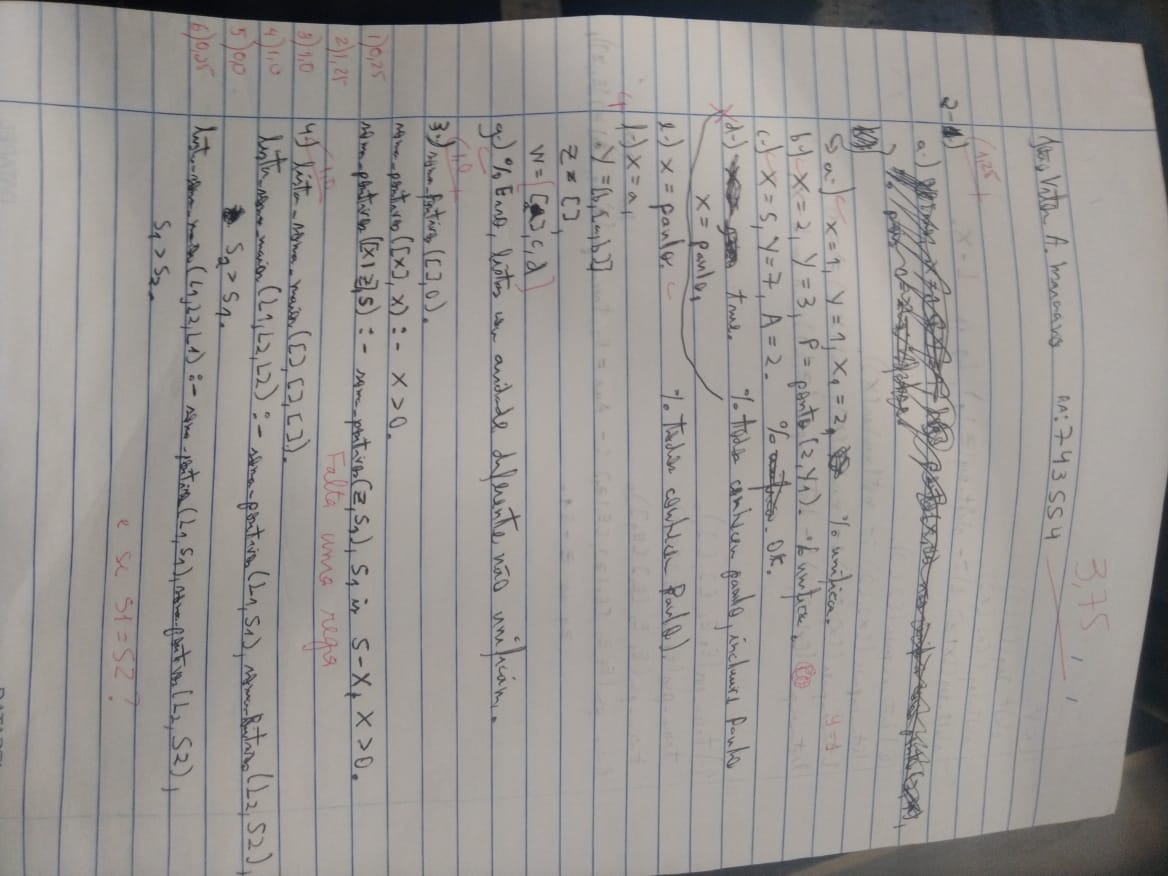 3,75
João Vitor A. RA: 743554
1,25
2-1)
a-)
a-) X=1, Y=1, X1=2, % unifica. Y=1
b-) X=2, Y=3, P=ponto(2,Y1). % unifica.
c-) X=5, Y=7, A=2. % OK.
d-) true. % todos conhecem paulo, inclusive Paulo
X=paulo,
e-) X=paulo. % Todos conhecem Paulo).
f-) X=a,
Y=[b,[a,b]]
Z=[],
W=[[],c,d]
g-) % Erro, listas com aridade diferente não unificam.
1,0
3-) soma_positivos([],0).
soma_positivos([X],X) :- X>0.
soma_positivos([X|Z],S) :- soma_positivos(Z,S1), S1 is S-X, X>0.
Falta uma regra
1) 0,25
2) 1,25
3) 1,0
4) 1,0
5) 0,0
6) 0,25
1,0
4-) lista_soma_maior([],[],[]).
lista_soma_maior(L1,L2,L2) :- soma_positivos(L1,S1), soma_positivos(L2,S2),
S2>S1.
lista_soma_maior(L1,L2,L1) :- soma_positivos(L1,S1), soma_positivos(L2,S2),
S1>S2.
e se S1=S2?